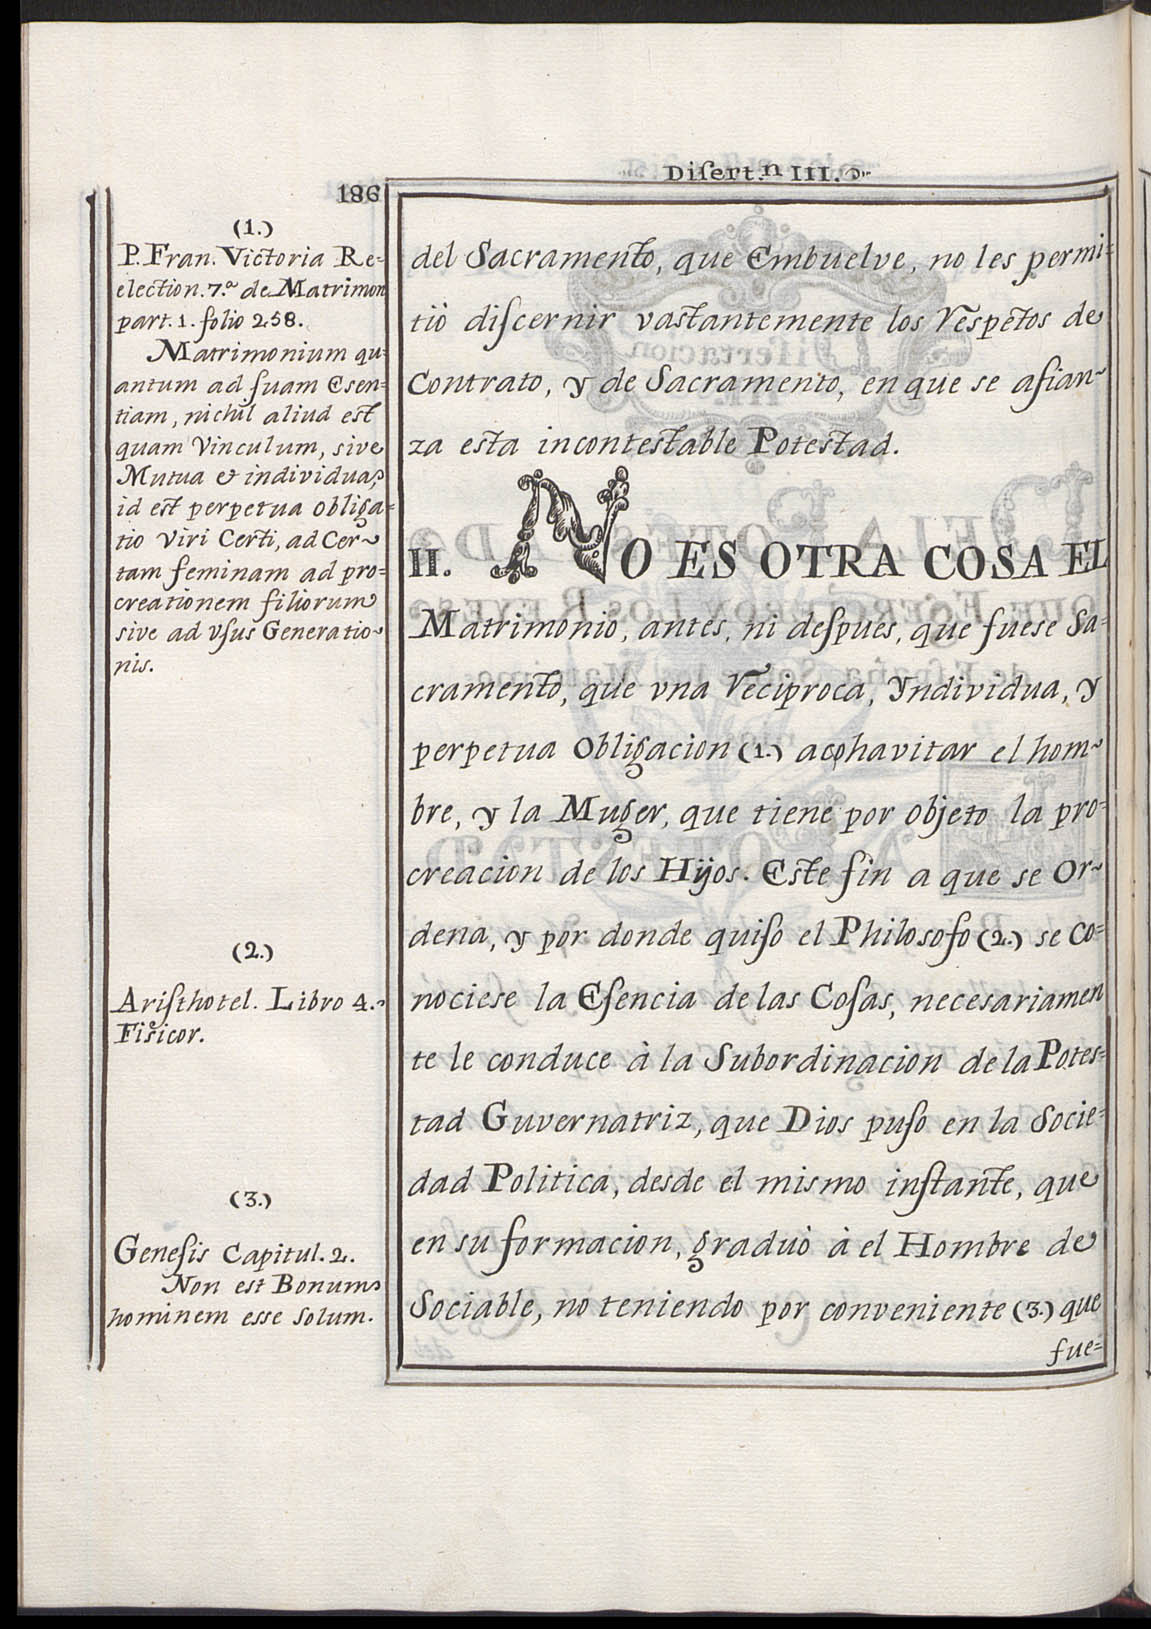 Disert.n III.
186
(1.)
P. Fran. Victoria Re=
election. 7.a de Matrimon
part. 1. folio 258.
Matrimonium qu=
antum ad suam Esen=
tiam, nichil aliud est
quam Vinculum, sive
Mutua et individua,
id est perpetua obliga=
tio Viri Certi, ad Cer~
tam feminam ad pro=
creationem filiorum
sive ad vsus Generatio~
nis.
(2.)
Aristhotel. Libro 4.
Fisicor.
(3.)
Genesis Capitul. 2.
Non est Bonum
hominem esse solum.
del Sacramento, que Embuelve, no les permi=
tiò discernir vastantemente los Respetos de
Contrato, y de Sacramento, en que se afian~
za esta incontestable Potestad.
II. NO ES OTRA COSA EL
Matrimonio, antes, ni despues, que fuese Sa=
cramento, que vna Reciproca, Yndividua, y
perpetua Obligacion (1.) acohavitar el hom~
bre, y la Muger, que tiene por objeto la pro=
creacion de los Hijos. Este fin a que se Or~
dena, y por donde quiso el Philosofo (2.) se co=
nociese la Esencia de las Cosas, necesariamen
te le conduce à la Subordinacion de la Potes=
tad Guvernatriz, que Dios puso en la Socie=
dad Politica, desde el mismo instante, que
en su formacion, graduò à el Hombre de
Sociable, no teniendo por conveniente (3.) que
fue=